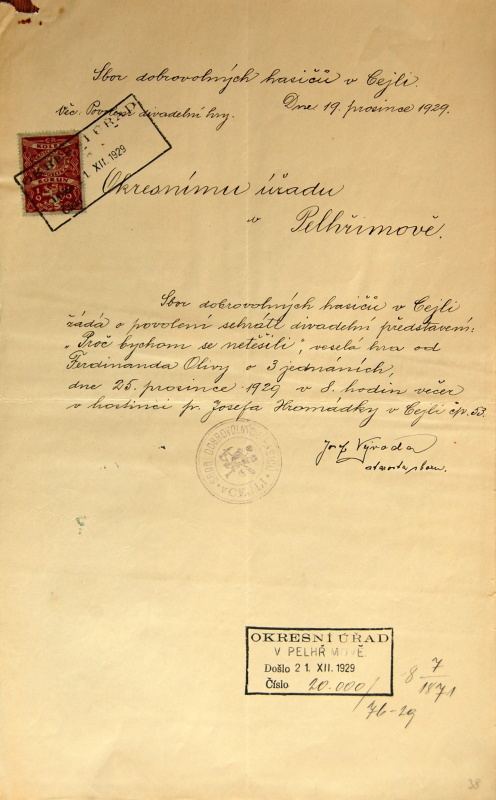 Sbor dobrovolných hasičů v Cejli.
Věc: Povolení divadelní hry.
Dne 19. prosince 1929.
1 XII. 1929
Okresnímu úřadu
v
Pelhřimově.
Sbor dobrovolných hasičů v Cejli
žádá o povolení sehráti divadelní představení:
„Proč bychom se netěšili", veselá hra od
Ferdinanda Olivy o 3 jednáních,
dne 25. prosince 1929 v 8. hodin večer
v hostinci p. Josefa Hromádky v Cejli čp. 53.
Josef
starosta sboru.
SBOR DOBROVOLNÝCH HASIČŮ
V CEJLI
OKRESNÍ ÚŘAD
V PELHŘIMOVĚ.
Došlo 21 XII. 1929
Číslo 20.000/
76-29
8 7/1871
38